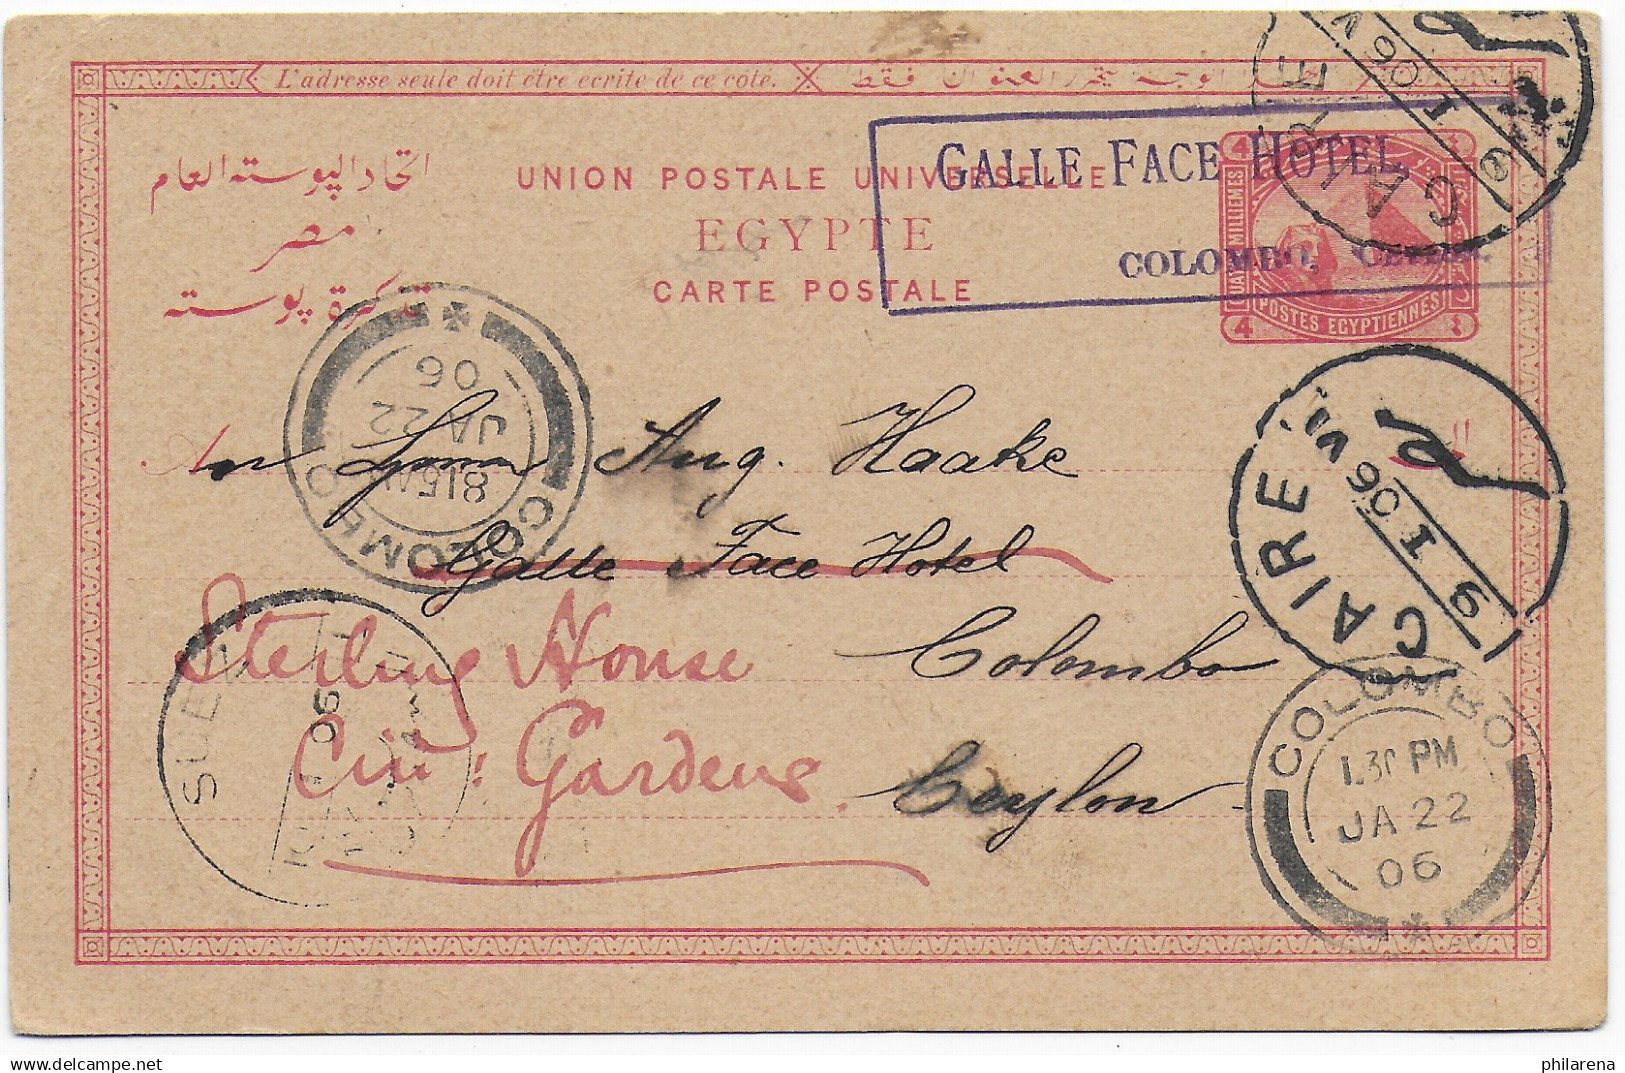 L'adresse seule doit être ecrite de ce coté.
اتحاد البوسته العام
مصر
تذكرة بوسته
UNION POSTALE UNIVERSELLE
EGYPTE
CARTE POSTALE
GALLE FACE HOTEL
COLOMBO, CEYLON.
4 4
MILLIEMES
POSTES EGYPTIENNES
4 ٤
CAIRE VI.
9 I 06
CAIRE VI.
9 I 06
COLOMBO
8 15 AM
JA 22
06
An Herrn Aug. Haake
Galle Face Hotel
Sterling House Colombo
Cin: Gardens. Ceylon
SUEZ
06
COLOMBO
1.30 PM
JA 22
06
philarena